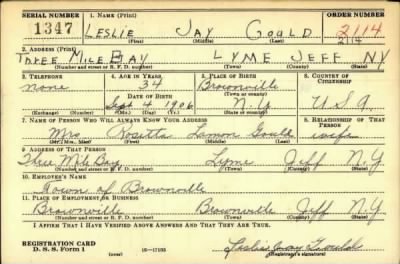 SERIAL NUMBER 1. NAME (Print) ORDER NUMBER
1347 LESLIE JAY GOULD 2114
(First) (Middle) (Last) 2114
2. ADDRESS (Print)
THREE MILE BAY LYME JEFF NY
(Number and street or R. F. D. number) (Town) (County) (State)
3. TELEPHONE 4. AGE IN YEARS 5. PLACE OF BIRTH 6. COUNTRY OF CITIZENSHIP
none 34 Brownville
DATE OF BIRTH (Town or county)
Sept 4 1906 N.Y U S A
(Exchange) (Number) (Mo.) (Day) (Yr.) (State or country)
7. NAME OF PERSON WHO WILL ALWAYS KNOW YOUR ADDRESS 8. RELATIONSHIP OF THAT PERSON
Mrs Rositta Lamon Gould wife
(Mr., Mrs., Miss) (First) (Middle) (Last)
9. ADDRESS OF THAT PERSON
Three Mile Bay Lyme Jeff N.Y
(Number and street or R. F. D. number) (Town) (County) (State)
10. EMPLOYER'S NAME
Town of Brownville
11. PLACE OF EMPLOYMENT OR BUSINESS
Brownville Brownville Jeff N.Y
(Number and street or R. F. D. number) (Town) (County) (State)
I AFFIRM THAT I HAVE VERIFIED ABOVE ANSWERS AND THAT THEY ARE TRUE.
REGISTRATION CARD
D. S. S. Form 1 (over) 16—17105 Leslie Jay Gould
(Registrant's signature)